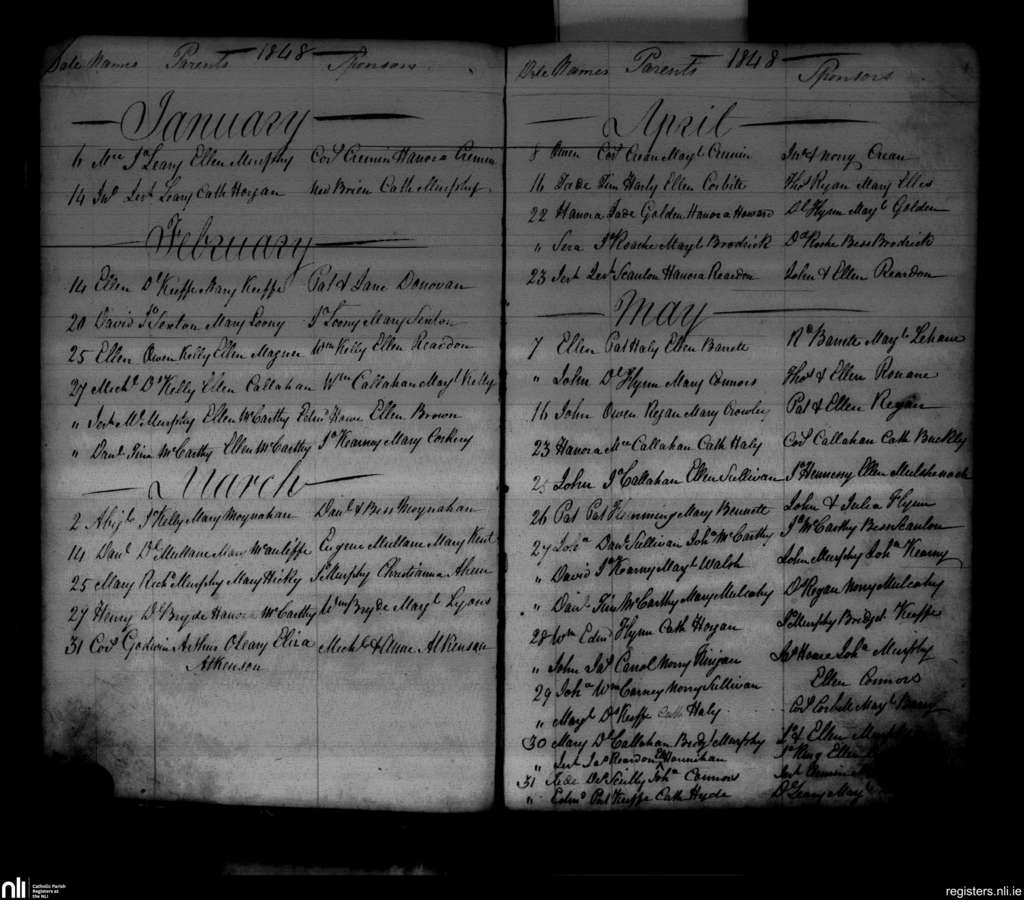 Date Names Parents 1848 Sponsors
January
6 Mce Jas Leary Ellen Murphy Cors Cremin Hanora Cremin
14 Jno Jerh Leary Cath Horgan Ned Brien Cath Murphy
February
14 Ellen Dl Keeffe Mary Keeffe Pat & Jane Donovan
20 David Jo Sexton Mary Loony Jo Loony Mary Sexton
25 Ellen Owen Kelly Ellen Magner Wm Kelly Ellen Reardon
27 Michl Dl Kelly Ellen Callahan Wm Callahan Magt Kelly
" Jerh Ml Murphy Ellen McCarthy Edmd Howe Ellen Brown
" Danl Tim McCarthy Ellen McCarthy Jo Kearney Mary Corkery
March
2 Abigl Jo Kelly Mary Moynahan Danl & Bess Moynahan
14 Danl Dl Mullane Mary McAuliffe Eugene Mullane Mary
25 Mary Richd Murphy Mary Hicky Jo Murphy Christianna Ahern
27 Henry Dl Bryde Hanora McCarthy Wm Bryde Magt Lyons
31 Cors Godwin Arthur OLeary Eliza Michl & Anne Atkenson
Atkenson
Date Names Parents 1848 Sponsors
April
8 Owen Cors Crean Magt Cremin Jno & Nory Crean
16 Jade Tim Harly Ellen Corbite Thos Ryan Mary Ellis
22 Hanora Jade Golden Hanora Howard Dl Flynn Magt Golden
" Jo Roache Magt Brodrick Dd Roche Bess Brodrick
23 Jerh Jerh Scanlon Hanora Reardon John & Ellen Reardon
May
7 Ellen Pat Haly Ellen Barrett Rd Barrett Magt Lehane
" John Dl Flynn Mary Connors Thos & Ellen Ronane
16 John Owen Regan Mary Crowley Pat & Ellen Regan
23 Hanora Mce Callahan Cath Haly Cors Callahan Cath Buckley
25 John Jo Callahan Ellen Sullivan Jo Hennessy Ellen
26 Pat Pat Mary Bennett John & Julia Flynn
27 Joha Danl Sullivan Joha McCarthy Jo McCarthy Bess Scanlon
" David Jo Kearny Magt Walsh John Murphy Joha Kearny
" Danl Tim McCarthy Mary Mulcahy Dl Regan Nory Mulcahy
28 Wm Edmd Flynn Cath Horgan Jo Murphy Bridget Keeffe
" John Jas Carrol Nory Jas Howe Joha Murphy
29 Joha Wm Carney Nory Sullivan Ellen Connors
" Magt Dl Keeffe Cath Haly Cors Corbett Magt Barry
30 Mary Dl Callahan Bridgt Murphy & Ellen
" Jerh Jas Reardon King Ellen
31 Jade Dl Scully Joha Connors Jerh
" Edmd Pat Keeffe Cath Hyde Dl Leary Magt
nli Catholic Parish
Registers at
the NLI
registers.nli.ie